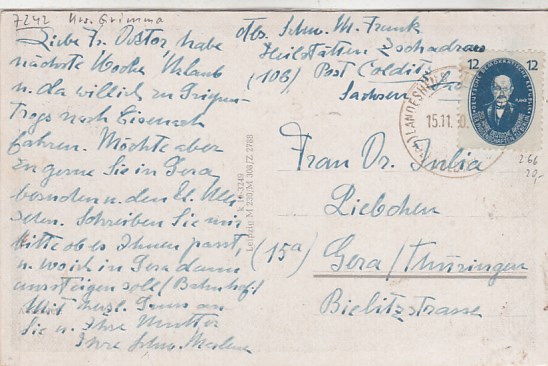 7242 Krs. Grimma
Liebe Fr. Doktor, habe
nächste Woche Urlaub
u. da will ich zu
nach Eisenach
fahren. Möchte aber
zu gerne Sie in Gera
besuchen u. den kl.
Schreiben Sie mir
bitte ob es Ihnen passt,
u. wo ich in Gera dann
aussteigen soll (Bahnhof)
Mit herzl. Gruss an
Sie u. Ihre Mutter
Ihre Schw.
Abs. Schw. M. Frank
Heilstätten Zschadrass
(10b) Post Colditz
Sachsen
12 12
15.11.50
266
20,-
Leipzig M 230/M 309/Z 2788
Frau Dr. Julia
Liebchen
(15a) Gera/Thüringen
Bielitzstrasse